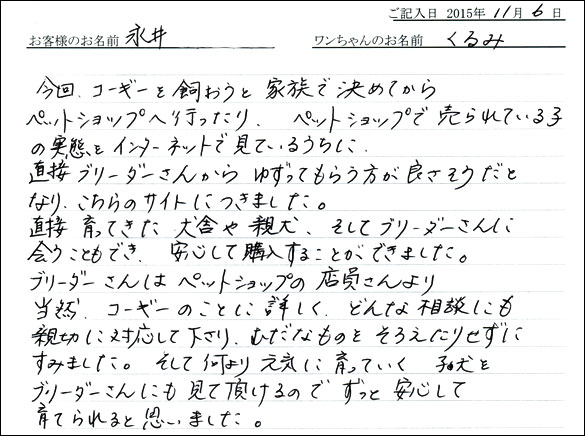 ご記入日 2015年 11月 6日
お客様のお名前 永井 ワンちゃんのお名前 くるみ
今回、コーギーを飼おうと家族で決めてから
ペットショップへ行ったり、ペットショップで売られている子
の実態をインターネットで見ているうちに、
直接ブリーダーさんからゆずってもらう方が良さそうだと
なり、こちらのサイトにつきました。
直接育ってきた犬舎や親犬、そしてブリーダーさんに
会うこともでき、安心して購入することができました。
ブリーダーさんはペットショップの店員さんより
当然、コーギーのことに詳しく、どんな相談にも
親切に対応して下さり、むだなものをそろえたりせずに
すみました。そして何より元気に育っていく子犬を
ブリーダーさんにも見て頂けるのでずっと安心して
育てられると思いました。